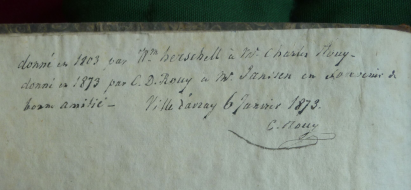 donné en 1803 par Wm herschell à Mr Charles Rouy
donné en 1873 par C. D. Rouy à Mr Janssen en souvenir de
bonne amitié – Ville d'avray 6 Janvier 1873.
C. Rouy